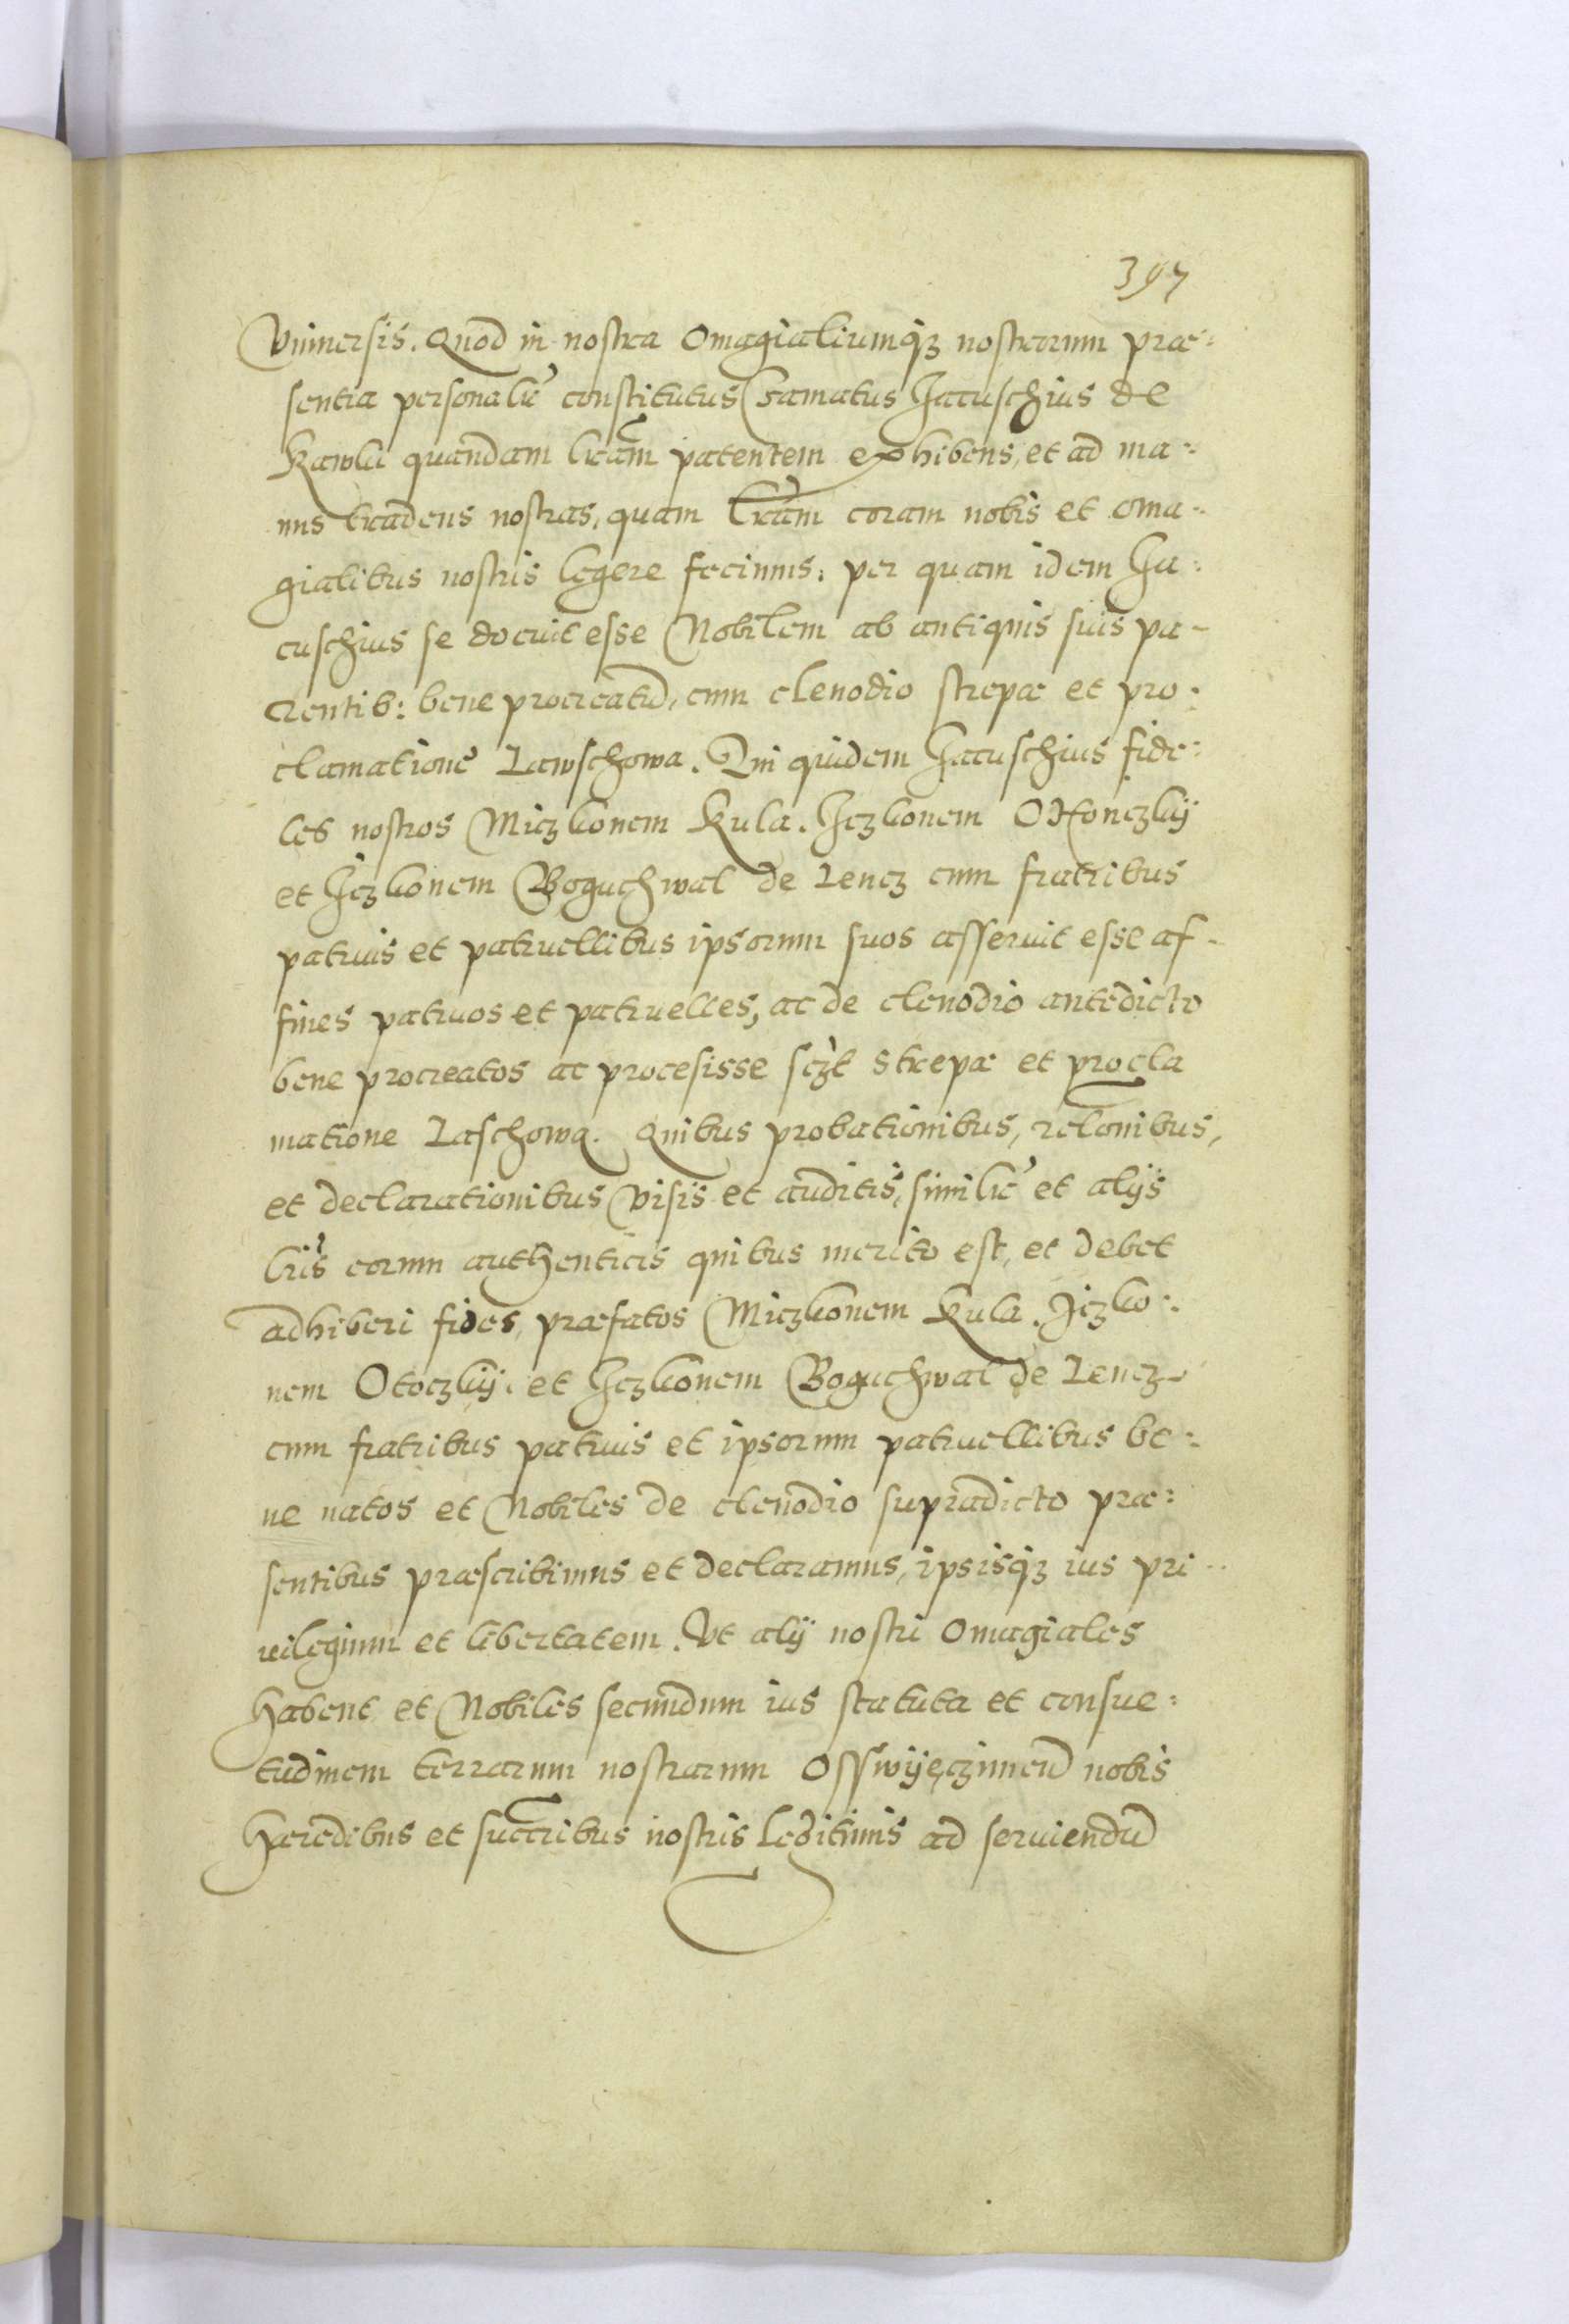 397
Vniuersis. Quod in nostra Omagialiumqз nostrorum præ:
sentia personalr̃ constitutus Famatus Jacuschius de
Kawlij quandam lr̃am patentem exhibens, et ad ma:
nus tradens nostras, quam lr̃am coram nobis et oma:
gialibus nostris legere fecimus, per quam idem Ja:
cuschius se docuit esse Nobilem ab antiquis suis pa-
rentib: bene procreatū, cum clenodio strepæ et pro:
clamatione Lawschowa. Qui quidem Jacuschius fide:
les nostros Miczkonem Kula. Jeczkonem Ottonczkij
et Jeczkonem Boguchwal de Lencz cum fratribus
patruis et patruellibus ipsorum suos asseruit esse af-
fines patruos et patruelles, ac de clenodio antedicto
bene procreatos ac procesisse sczt Strepæ et procla
matione Laschowa. Quibus probationibus, relonibus,
et declarationibus visis et auditis, similr̃ et alijs
lris eorum authenticis quibus merito est, et debet
adhiberi fides, præfatos Miczkonem Kula. Jeczko:
nem Otoczkij. et Jeczkonem Boguchwal de Lencz-
cum fratribus patruis et ipsorum patruellibus be:
ne natos et Nobiles de clenodio supradicto præ:
sentibus præscribimus et declaramus, ipsisqз ius pri:
uilegium et libertatem. Vt alij nostri Omagiales
habent et Nobiles secundum ius statuta et consue:
tudinem terrarum nostrarum Osswijęczimeñ nobis
hæredibus et succribus nostris legitimis ad seruiendū